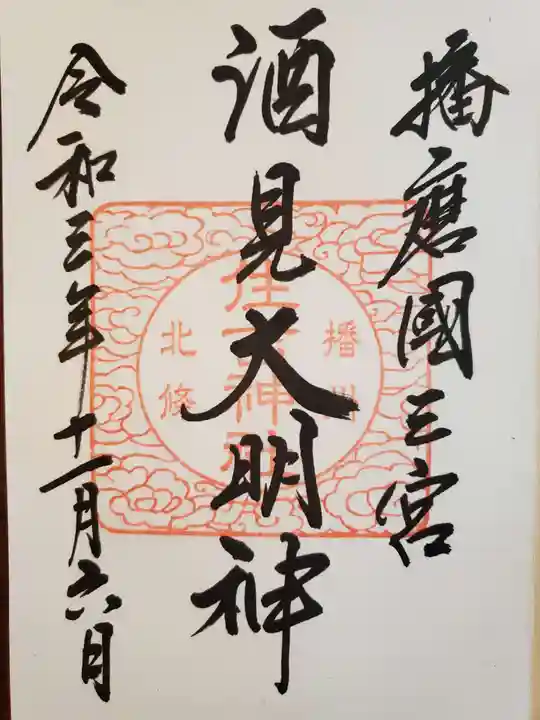 播磨國三宮
酒見大明神
令和三年十一月六日
播州
北條
住吉神社